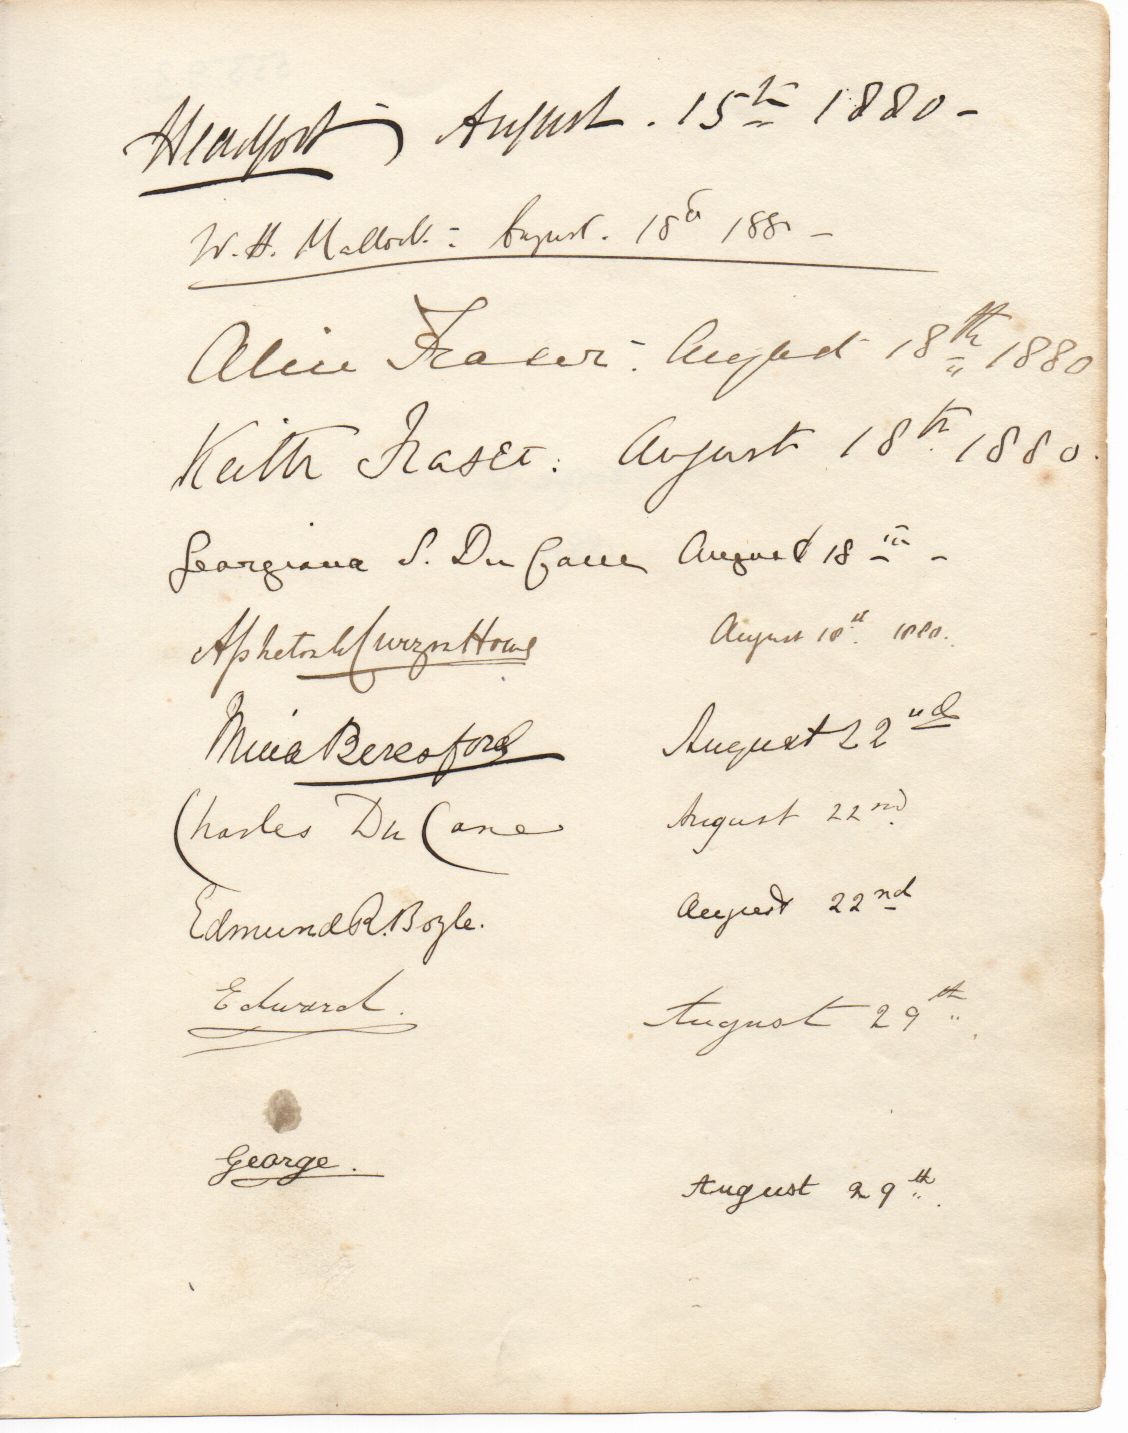 Headfort August . 15th 1880 -
W. H. Mallock - August . 18th 1880 -
Alice Fraser . August 18th 1880
Keith Fraser . August 18th 1880 .
Georgiana S. Du Cane August 18th -
Assheton Curzon Howe August 18th 1880 .
Mina Beresford August 22nd
Charles Du Cane August 22nd
Edmund R. Boyle. August 22nd
Edward . August 29th
George . August 29th .